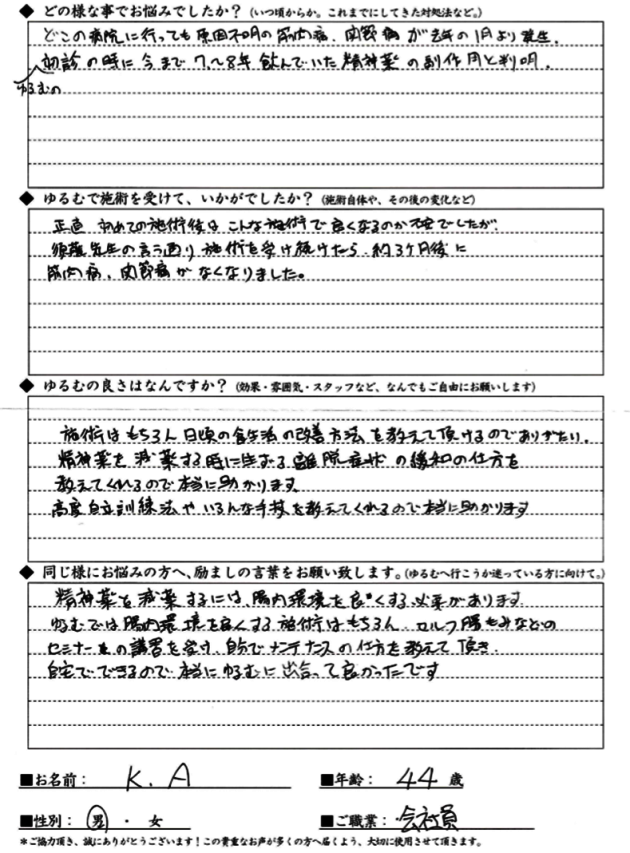 ◆ どの様な事でお悩みでしたか？（いつ頃からか。これまでにしてきた対処法など。）
どこの病院に行っても原因不明の筋肉痛、関節痛が去年の1月より発生。
初診の時に今まで7、〜8年飲んでいた精神薬の副作用と判明。
ゆるむの
◆ ゆるむで施術を受けて、いかがでしたか？（施術自体や、その後の変化など）
正直 初めての施術後は こんな施術で良くなるのか不安でしたが、
須藤先生の言う通り 施術を受け続けたら、約3ヶ月後に
筋肉痛、関節痛が なくなりました。
◆ ゆるむの良さはなんですか？（効果・雰囲気・スタッフなど、なんでもご自由にお願いします）
施術はもちろん 日頃の食生活の改善方法を教えて頂けるのでありがたい。
精神薬を 減薬する時に生ずる 離脱症状の緩和の仕方を
教えてくれるので本当に助かります
高度自立訓練法や いろんな手技を教えてくれるので本当に助かります
◆ 同じ様にお悩みの方へ、励ましの言葉をお願い致します。（ゆるむへ行こうか迷っている方に向けて。）
精神薬を 減薬するには、腸内環境を良くする必要があります。
ゆるむでは 腸内環境を良くする 施術はもちろん、セルフ腸もみなどの
セミナーの講習を受け、自分でメンテナンスの仕方を教えて頂き、
自宅でできるので、本当にゆるむに出会って良かったです
■お名前： K.A
■年齢： 44 歳
■性別： 男 ・ 女
■ご職業： 会社員
＊ご協力頂き、誠にありがとうございます！この貴重なお声が多くの方へ届くよう、大切に使用させて頂きます。